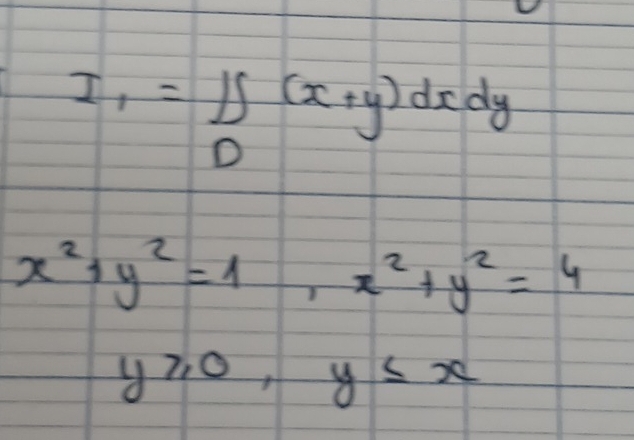 I₁ = ∬ (x+y) dx dy
D
x² + y² = 1 , x² + y² = 4
y ≥ 0 , y ≤ x